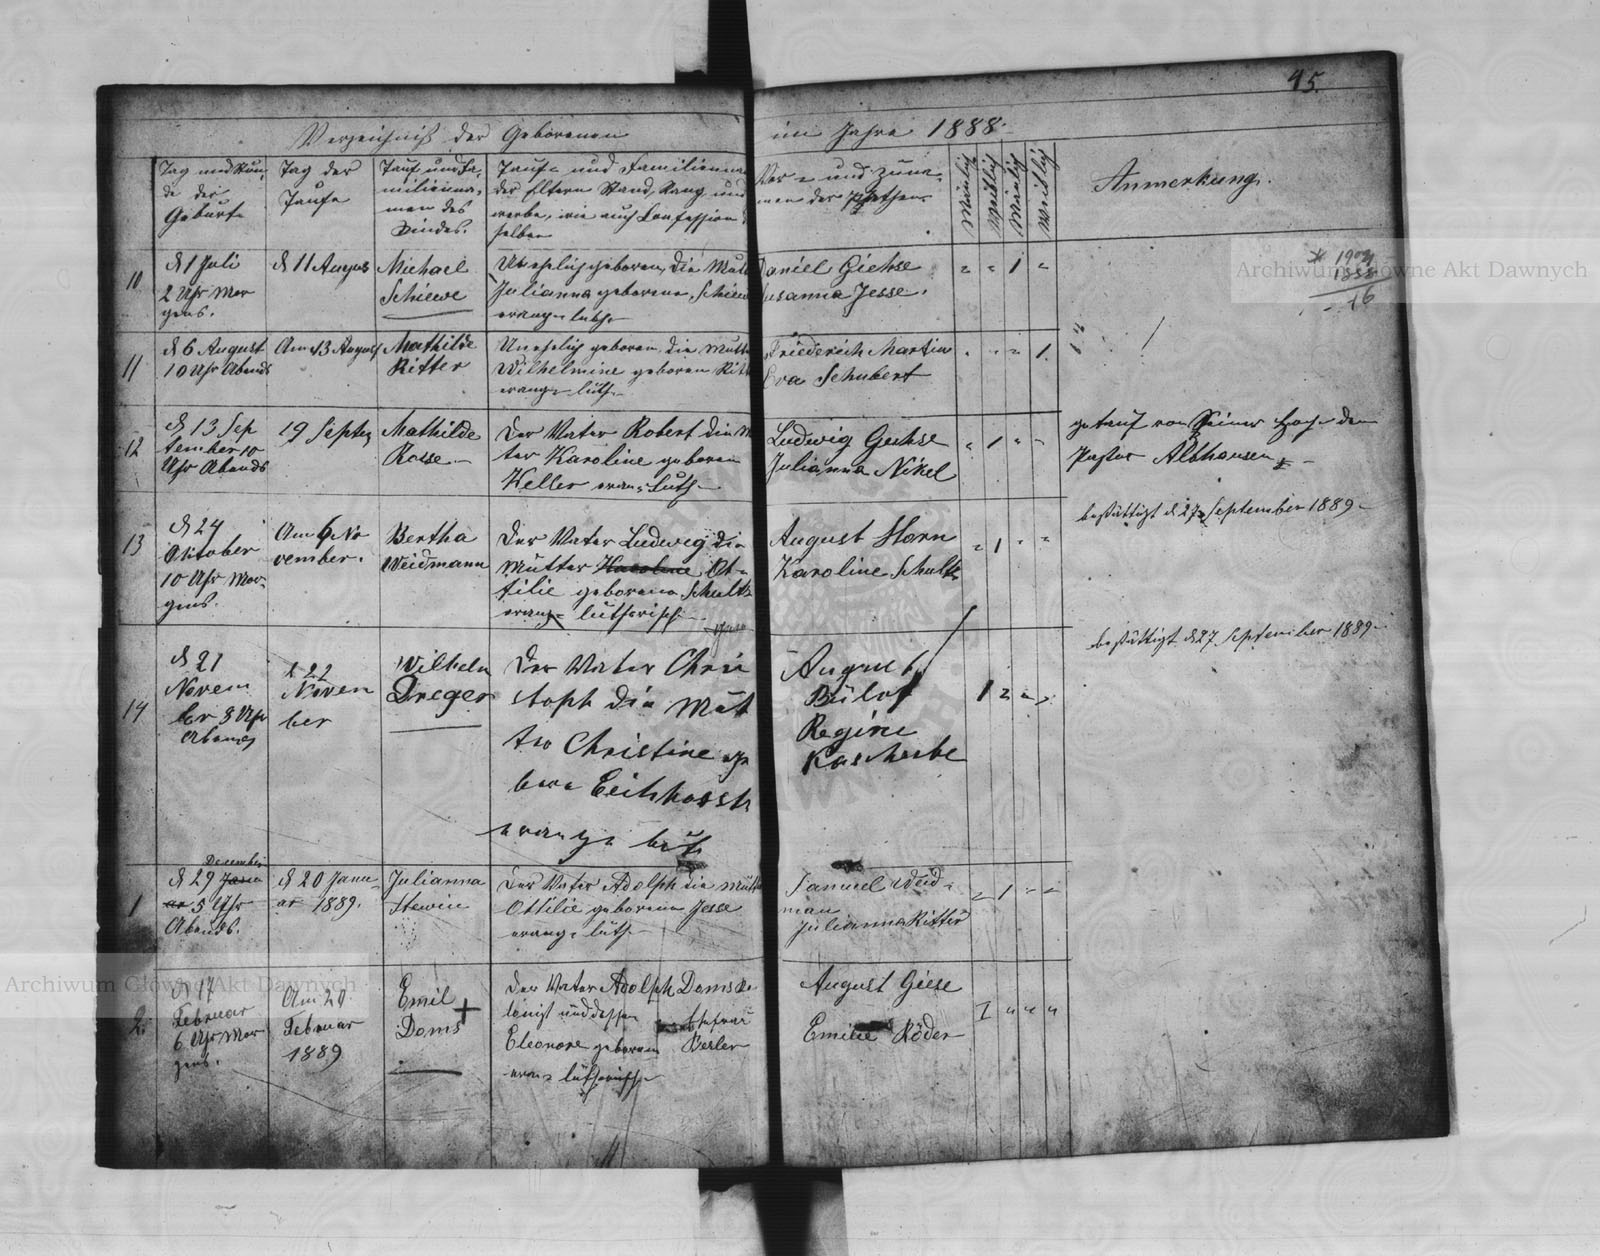 45.
Verzeichniß der Geborenen im Jahre 1888.
Tag und Stun-
de der
Geburt
Tag der
Taufe
Tauf und Fa-
milienna-
men des
Kindes.
Tauf- und Familienna
der Eltern Stand, Rang und
werbe, wie auch Confession
selben
Vor- und Zuna-
men der Pathen
Mänlich
Weiblich
Mänlich
Weiblich
Anmerkung.
10
d 1 Juli
2 Uhr Mor
gens.
d 11 August
Michael
Schiewe
Unehelich geboren, die Mutt
Julianna geborene Schiew
evang- luth-
Daniel Giehse
Susanna Jesse.
" " 1 "
1904
1888
16
11
d 6 August
10 Uhr Abends
Am 13 August
Mathilde
Ritter
Unehelich geboren, die Mutte
Wilhelmine geboren Ritt
evang- luth-
Friederich Martin
Eva Schubert
" " " 1.
12
d 13 Sep
tember 10
Uhr Abends
19 Septem
Mathilde
Rosse
Der Vater Robert die M
ter Karoline geboren
Keller evan- Luth-
Ludwig Gehse
Julianna Nikel
" 1 " "
getauf von Seiner Hoch- dem
Pastor Althausen
13
d 24
Oktober
10 Uhr Mor-
gens.
Am 6 No
vember.
Bertha
Weidmann
Der Vater Ludwig die
Mutter Karoline Ot-
tilie geborene Schultz
evang- lutherisch
August Horn
Karoline Schultz
" 1 " "
bestättigt d 27 September 1889-
14
d 21
Novem
ber 8 Uhr
Abends
d 22
Novem
ber
Wilhelm
Dreger
Der Vater Chris
stoph die Mut
ter Christine ge
borne
evang- luth
August
Bülof
Regine
Kascherbe
1 " " "
bestättigt d 27 September 1889-
1
December
d 29 Janu
ar 5 Uhr
Abends.
d 20 Janu-
ar 1889.
Julianna
Der Vater Adolph die Mutte
Ottilie geborene Jesse
evang- luth-
Samuel Weid-
man
Julianna Ritter
" 1 " "
2.
d 17
Februar
6 Uhr Mor
gens.
Am 20
Februar
1889
Emil
Doms
Der Vater Adolph Doms
und dessen Ehefrau
Eleonore geboren Berler
evan- lutherisch-
August Giese
Emilie Röder
1 " " "
Archiwum Główne Akt Dawnych
Archiwum Główne Akt Dawnych